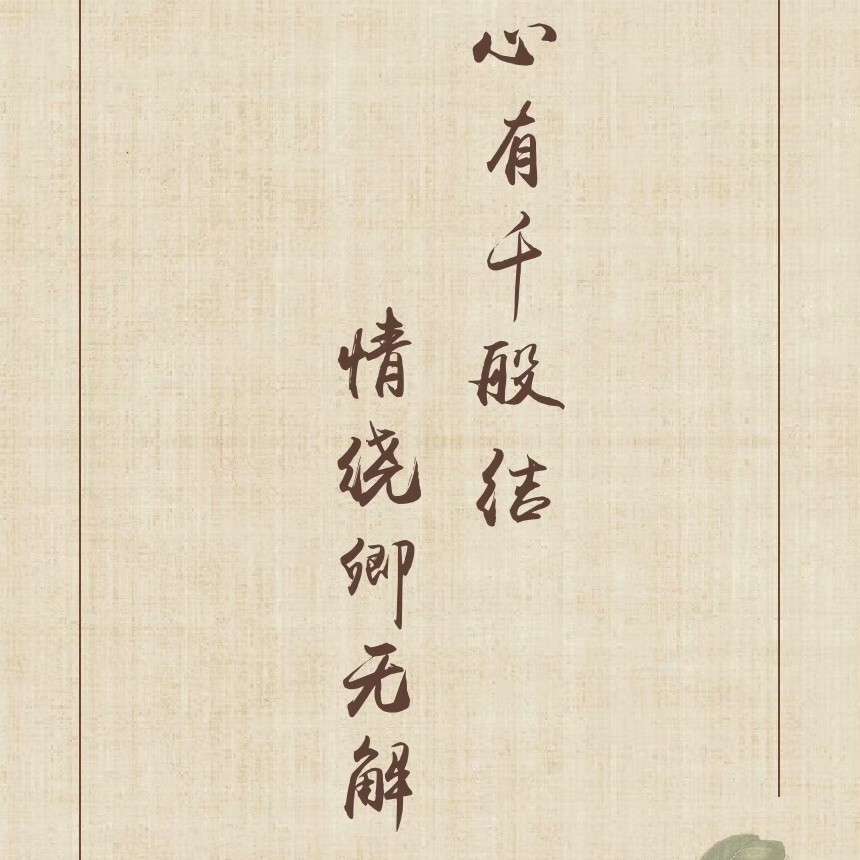 心有千般结
情绕卿无解